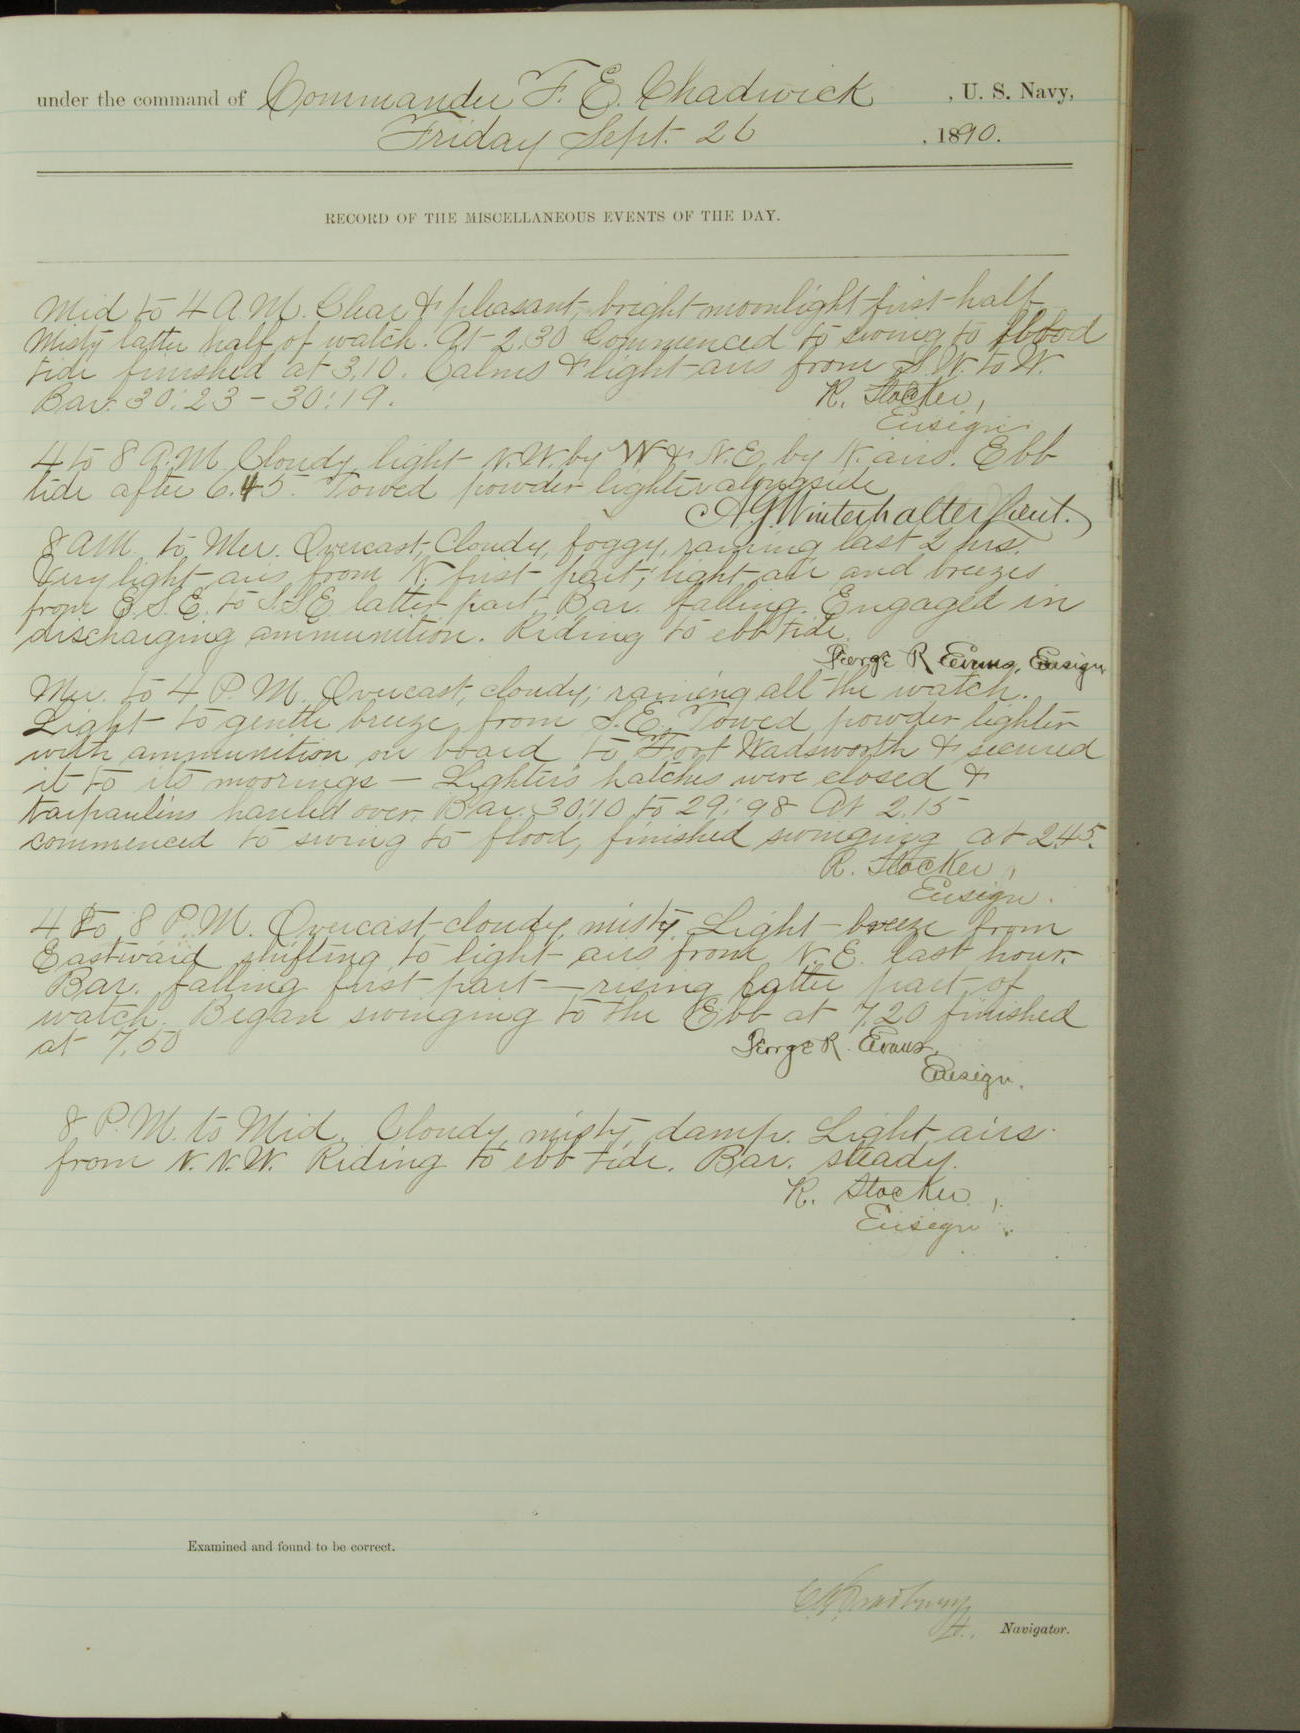 under the command of Commander F. E. Chadwick , U. S. Navy,
Friday Sept. 26 , 1890.
RECORD OF THE MISCELLANEOUS EVENTS OF THE DAY.
Mid to 4 A.M. Clear & pleasant, bright moonlight first half
Misty latter half of watch. At 2.30 Commenced to swing to flood
tide finished at 3.10. Calms & light airs from S.W. to W.
Bar. 30:23 – 30:19.
R. Stocker,
Ensign.
4 to 8 A.M. Cloudy light N.W. by W & N.E. by N. airs. Ebb
tide after 6.45. Towed powder lighter alongside
A.G. Winterhalter Lieut.
8 AM. to Mer. Overcast, Cloudy, foggy, raining last 2 hrs.
Very light airs from N. first part; light airs and breezes
from E.S.E. to S.S.E. latter part. Bar. falling. Engaged in
discharging ammunition. Riding to ebb tide.
George R Evans, Ensign
Mer. to 4 P.M. Overcast, cloudy; raining all the watch.
Light to gentle breeze from S.E. Towed powder lighter
with ammunition on board to Fort Wadsworth & secured
it to its moorings — Lighter's hatches were closed &
tarpaulins hauled over. Bar. 30:10 to 29:98 At 2.15
commenced to swing to flood, finished swinging at 2.45.
R. Stocker,
Ensign.
4 to 8 P.M. Overcast cloudy misty. Light breeze from
Eastward shifting to light airs from N.E. last hour.
Bar. falling first part — rising latter part of
watch. Began swinging to the Ebb at 7.20 finished
at 7.50
George R. Evans,
Ensign.
8 P.M. to Mid. Cloudy, misty, damp. Light airs
from N.N.W. Riding to ebb tide. Bar. steady.
R. Stocker,
Ensign.
Examined and found to be correct.
Navigator.